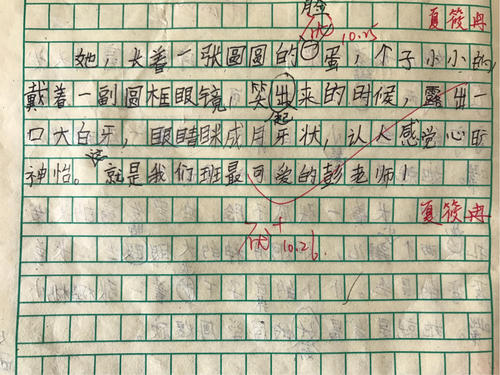 脸
优 10.25 夏筱冉
她,长着一张圆圆的蛋,个子小小的,
戴着一副圆框眼镜,笑出来的时候,露出一
起
口大白牙,眼睛眯成月牙状,认人感觉心旷
神怡。这就是我们班最可爱的彭老师!
夏筱冉
优+
10.26.